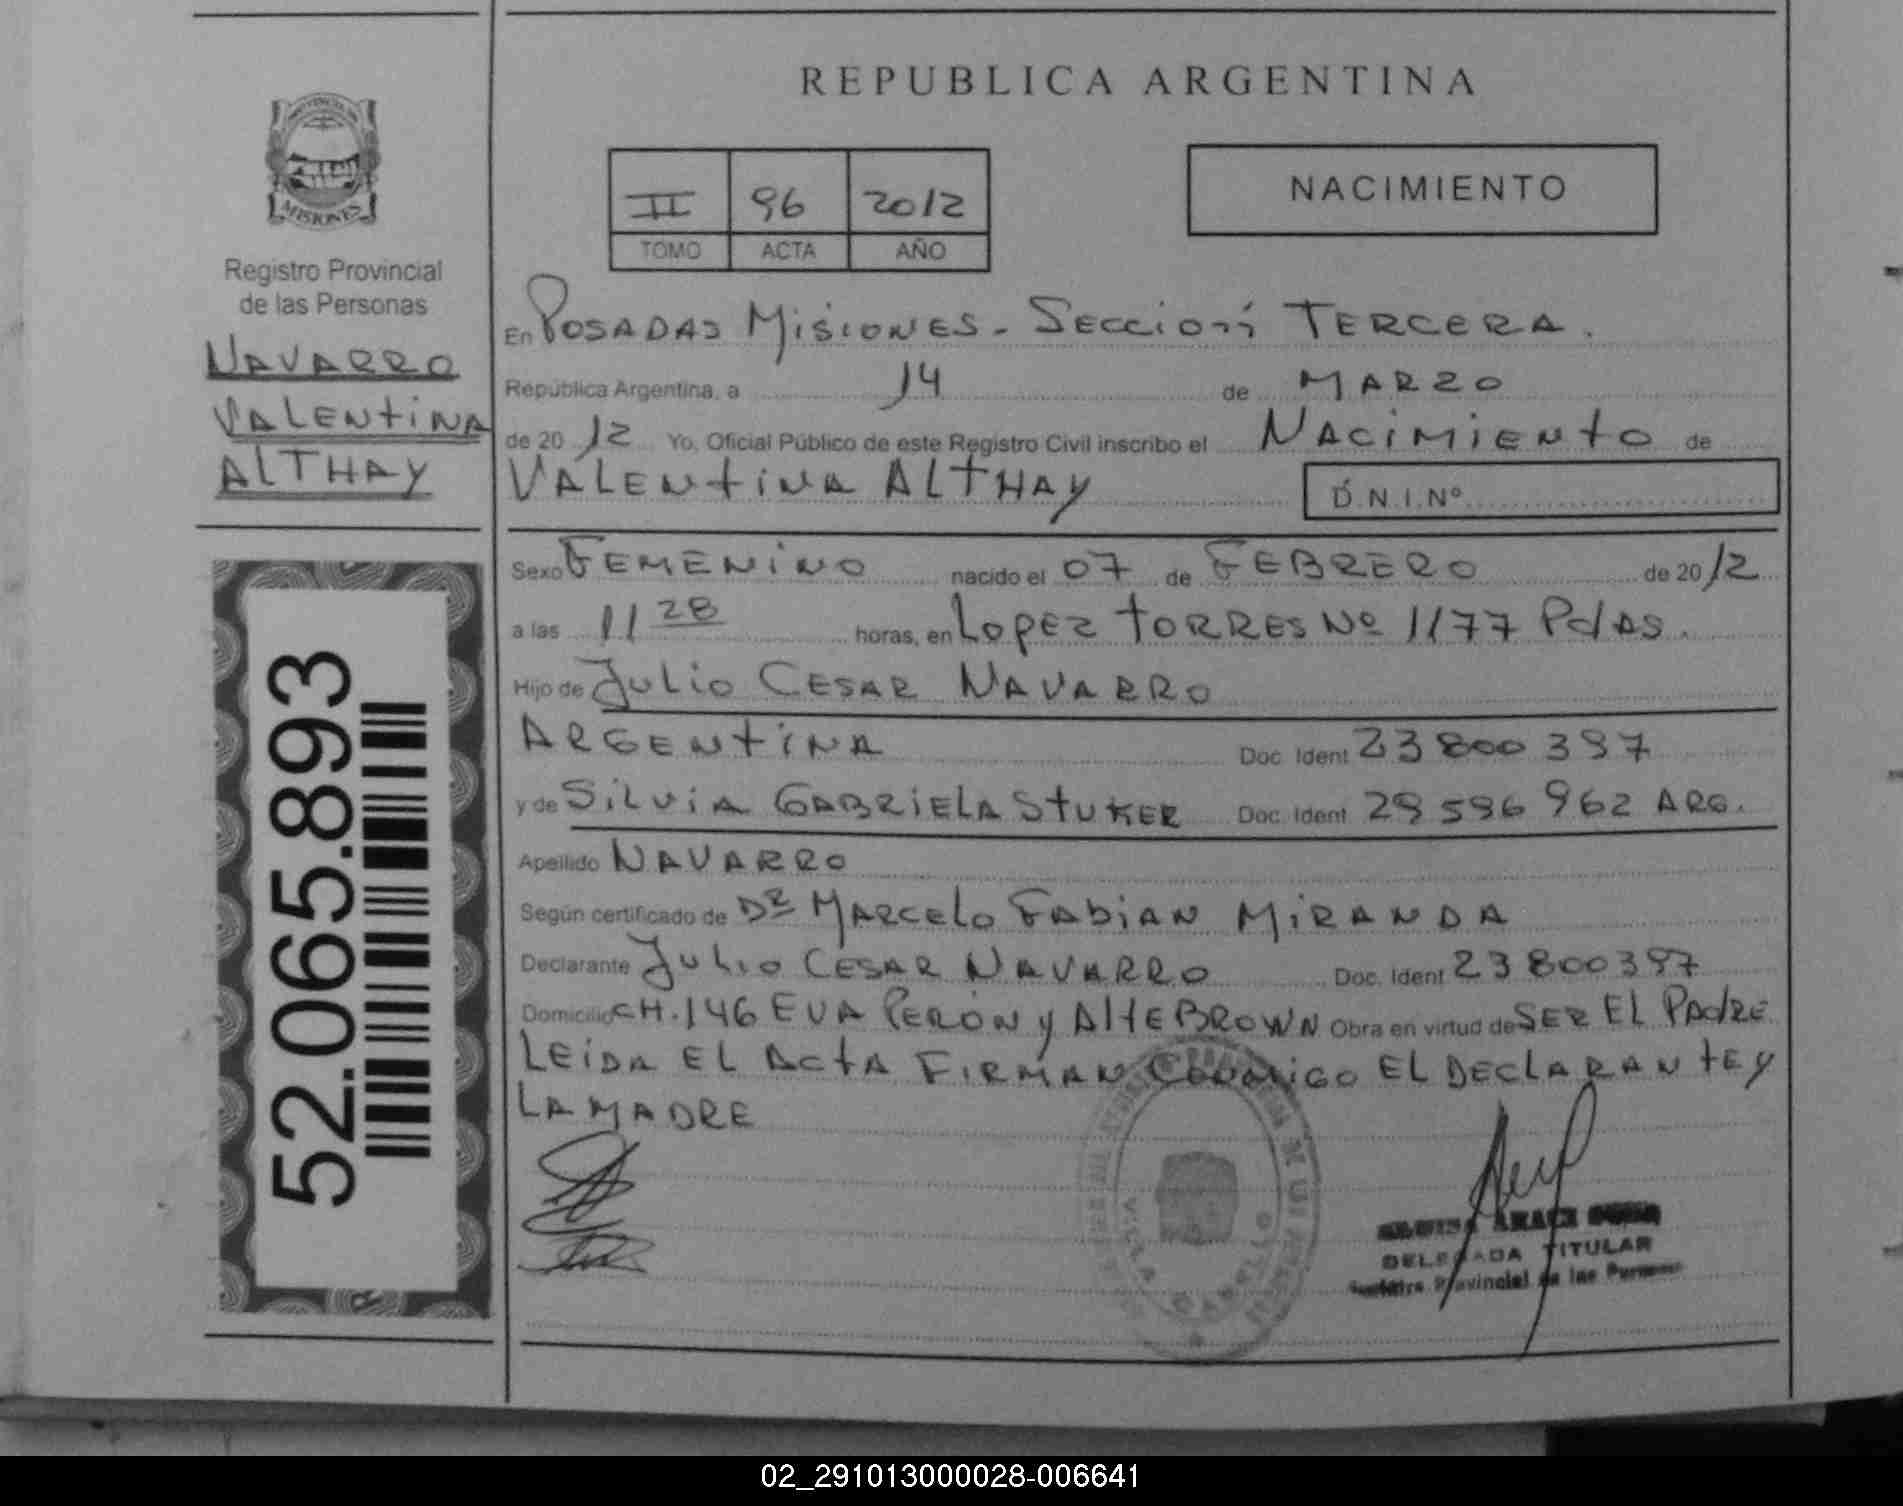 REPUBLICA ARGENTINA
PROVINCIA DE
MISIONES
Registro Provincial
de las Personas
NAVARRO
VALENTINA
ALTHAY
52.065.893
II 96 2012
TOMO ACTA AÑO
NACIMIENTO
En POSADAS MISIONES - SECCIÓN TERCERA.
República Argentina, a 14 de MARZO
de 2012 Yo, Oficial Público de este Registro Civil inscribo el NACIMIENTO de
VALENTINA ALTHAY D.N.I.Nº
Sexo FEMENINO nacido el 07 de FEBRERO de 2012
a las 11 28 horas, en LOPEZ TORRES Nº 1177 PdAS.
Hijo de JULIO CESAR NAVARRO
ARGENTINA Doc. Ident 23 800 397
y de SILVIA GABRIELA STUKER Doc. Ident 29 596 962 ARG.
Apellido NAVARRO
Según certificado de DR MARCELO FABIAN MIRANDA
Declarante JULIO CESAR NAVARRO Doc. Ident 23800397
Domicilio CH. 146 EVA PERÓN y AltE BROWN Obra en virtud de SER EL PADRE
LEIDA EL ACTA FIRMAN CONMIGO EL DECLARANTE Y
LA MADRE
DELEGADA TITULAR
Provincial de las
02_291013000028-006641